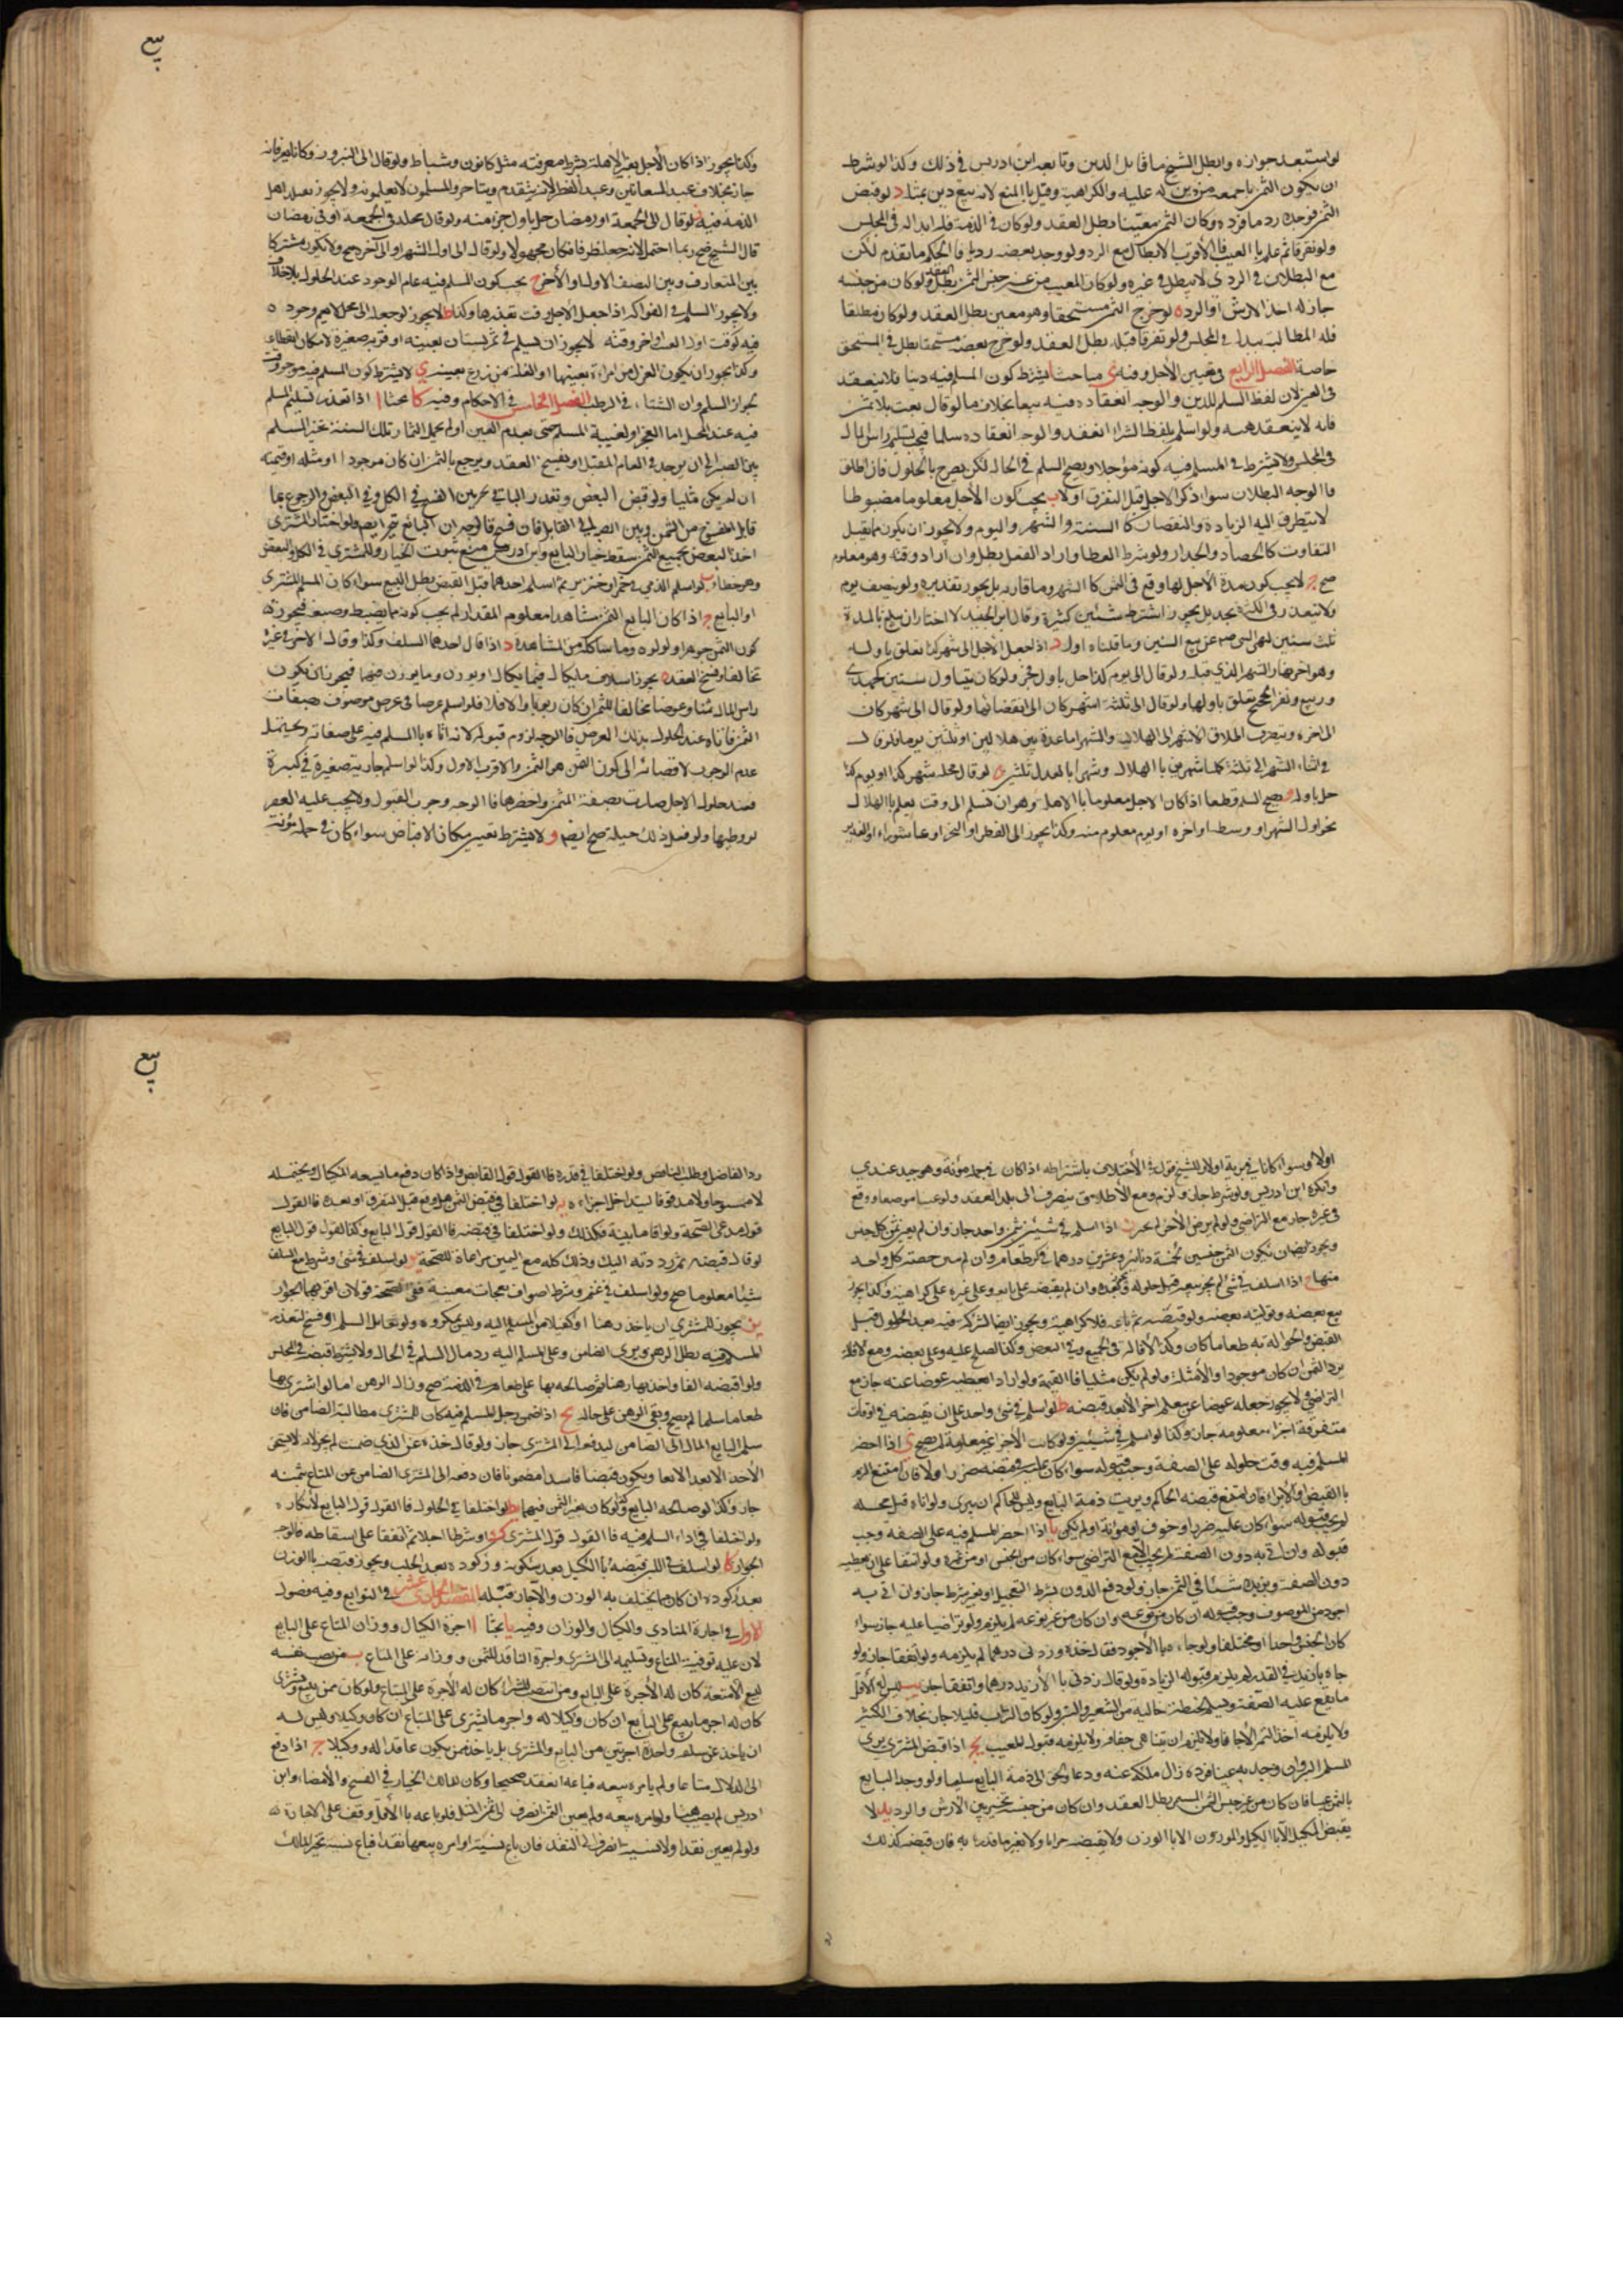 لو استبعد جوازه وابطل الشيخ ما قابل الدين وتابعه ابن ادريس في ذلك وكذا لو شرط
ان يكون الثمن باجمعه من دين له عليه والكراهية وقيل بالمنع لانه بيع دين بمثله د لو قبض
الثمن فوجده رديا فرده وكان الثمن معينا بطل العقد ولو كان في الذمة فله ابداله في المجلس
ولو تفرقا ثم علم بالعيب فالاقرب الابطال مع الرد ولو وجد بعضه رديا فالحكم ما تقدم لكن
مع البطلان في الردي لا يبطل في غيره ولو كان المعيب من غير جنس الثمن بطل العقد ولو كان من جنسه
جاز له اخذ الارش او الرد ه لو خرج الثمن مستحقا وهو معين بطل العقد ولو كان مطلقا
فله المطالبة ببدله في المجلس ولو تفرقا قبله بطل العقد ولو خرج بعضه مستحقا بطل في المستحق
خاصة الفصل الرابع في تعيين الاجل وفيه ي مباحث ا يشترط كون المسلم فيه دينا فلا ينعقد
في العين لان لفظ السلم للدين والوجه انعقاده فيه بيعا بخلاف ما لو قال بعت بلا ثمن
فانه لا ينعقد هبة ولو اسلم بلفظ الشراء انعقد والوجه انعقاده سلما فيجب تسليم راس المال
في المجلس ولا يشترط في المسلم فيه كونه مؤجلا ويصح السلم في الحال لكن يصرح بالحلول فان اطلق
فالوجه البطلان سواء ذكرا الاجل قبل التفرق اولا ب يجب كون الاجل معلوما مضبوطا
لا يتطرق اليه الزيادة والنقصان كالسنة والشهر واليوم ولا يجوز ان يكون مما يقبل
التفاوت كالحصاد والجداد ولو شرط العطا واراد الفعل بطل وان اراد وقته وهو معلوم
صح ج لا يجب كون مدة الاجل لها وقع في الثمن كالشهر وما قاربه بل يجوز تقديره ولو بنصف يوم
ولا يتقدر في الكثرة بحد بل يجوز اشتراط سنين كثيرة وقال ابن الجنيد لا اختار ان يبلغ بالمدة
ثلث سنين لنهي النبي ص عن بيع السنين وما قلناه اولى د اذا جعل الاجل الى شهر كذا تعلق باوله
وهو اخر نهار الشهر الذي قبله ولو قال الى يوم كذا حل باول فجره ولو كان يتناول شيئين كجمادى
وربيع ونفر الحجيج تعلق باولها ولو قال الى ثلثة اشهر كان الى انقضائها ولو قال الى شهر كان
الى اخره وينصرف اطلاق الاشهر الى الهلالية والشهر اما عدة بين هلالين او ثلثين يوما فلو قال
في اثناء الشهر الى ثلثة كملا شهرين بالهلال وشهرا بالعدد ثلثين ه لو قال محله شهر كذا او يوم كذا
حل باوله و يصح السلم قطعا اذا كان الاجل معلوما بالاهلة وهو ان يسلم الى وقت يعلم بالهلال
نحو اول الشهر او وسطه او اخره او يوم معلوم منه وكذا يجوز الى الفطر او النحر او عاشوراء او الغدير
وكذا يجوز اذا كان الاجل بغير الاهلة بشرط معرفته مثل كانون وشباط ولو قال الى النيروز وكانا يعرفانه
جاز بخلاف عيد السعانين وعيد الفطر لانه يتقدم ويتاخر والمسلمون لا يعلمونه ولا يجوز تقليد اهل
الذمة فيه ز لو قال الى الجمعة او رمضان حل باول جزء منه ولو قال محله في الجمعة او في رمضان
قال الشيخ صح وربما احتمل لانه جعله ظرفا فكان مجهولا ولو قال الى اول الشهر او الى آخره صح ولا يكون مشتركا
بين المتعارف وبين النصف الاول او الاخر ح يجب كون المسلم فيه عام الوجود عند الحلول بلا خلاف
ولا يجوز السلم في الفواكه اذا جعل الاجل وقت تعذرها وكذا ط لا يجوز لو جعله الى محل لا يعم وجوده
فيه كوقت اول العنب او اخر وقته لا يجوز ان يسلم في ثمر بستان بعينه او قرية صغيرة لامكان انقطاعه
وكذا لا يجوز ان يكون الغزل من امراة بعينها او الغلة من زرع بعينه ي لا يشترط كون المسلم فيه موجودا وقت
بجواز السلم وان الشتاء في الرطب الفصل الخامس في الاحكام وفيه كا بحثا ا اذا تعذر تسليم المسلم
فيه عند المحل اما لعجز او لغيبة المسلم حتى يعدم العين او لم يحمل الثمار تلك السنة تخير المسلم
بين الصبر الى ان يوجد في العام المقبل او يفسخ العقد ويرجع بالثمن ان كان موجودا او مثله او قيمته
ان لم يكن مثليا ولو قبض البعض وتعذر الباقي تخير بين الفسخ في الكل وفي البعض والرجوع بما
قابل المفسوخ من الثمن وبين الصبر الى القابل فان فسخ فالوجه ان البائع تخير ايضا ولو اختار المشتري
اخذ البعض بجميع الثمن سقط خيار البايع وابن ادريس منع ثبوت الخيار للمشتري في الكل والبعض
وهو خطاء ب لو اسلم الذمي في خمر او خنزير ثم اسلم احدهما قبل القبض بطل البيع سواء كان المسلم المشتري
او البايع ج اذا كان البايع الثمن مشاهدا معلوم المقدار لم يجب كونه مما يضبط وصفه فيجوز
كون الثمن جوهرا ولولوه وما شاكله من المشاهدة د اذا قال احدهما السلف وكذا وقال الاخر في غيره
تحالفا وفسخ العقد ه يجوز اسلاف ما يكال فيما يكال او يوزن وما يوزن فيهما فيجوز ان يكون
راس المال ثمنا وعوضا مخالفا للثمن ان كان ربويا والا فلا فلو اسلم عرضا في عرض موصوف بصفات
الثمن فاتاه عند الحلول بذلك العرض فالوجه لزوم قبوله لانه اتاه بالمسلم فيه على صفاته ويحتمل
عدم الوجوب لافضائه الى كون الثمن هو المثمن والاقرب الاول وكذا لو اسلم جارية صغيرة في كبيرة
فعند حلول الاجل صارت بصفة المثمن واحضرها فالوجه وجوب القبول ولا يجب عليه العقر
لو وطيها ولو فعل ذلك حيلة صح ايضا و لا يشترط تعيين مكان الاقباض سواء كان في حمله مؤنة
بيع
اولا وسواء كانا في برية اولا وللشيخ قول في الخلاف باشتراطه اذا كان في حمله مؤنة وهو جيد عندي
وانكره ابن ادريس ولو شرط جاز ولزم ومع الاطلاق ينصرف الى بلد العقد ولو عينا موضعا ودفع
في غيره جاز مع التراضي ولو لم يرض الاخر لم يجبر ز اذا اسلم في شيئين بثمن واحد جاز وان لم يعين ثمن كل جنس
ويجوز ايضا ان يكون الثمن جنسين كخمسة دنانير وعشرين درهما في كر طعام وان لم يبين حصة كل واحد
منهما ح اذا اسلف في شيء لم يجز بيعه قبل حلوله ويجوز بعده وان لم يقبضه على بايعه وعلى غيره على كراهية وكذا يجوز
بيع بعضه وتوليته بعضه ولو قبضه ثم باعه فلا كراهية ويجوز ايضا الشركة فيه بعد الحلول قبل
القبض والحوالة به طعاما كان وكذا الاقالة في الجميع وفي البعض وكذا الصلح عليه وعلى بعضه ومع الاقالة
يرد الثمن ان كان موجودا والا مثله ولو لم يكن مثليا فالقيمة ولو اراد ان يعطيه عوضا عنه جاز مع
التراضي ولا يجوز جعله عوضا عن سلم اخر الا بعد قبضه ط لو اسلم في شيء واحد على ان يقبضه في اوقات
متفرقة اجزاء معلومة جاز وكذا لو اسلم في شيئين ولو كانت الاجزاء غير معلومة لم يصح ي اذا احضر
المسلم فيه وقت حلوله على الصفة وجب قبوله سواء كان عليه في قبضه ضرر اولا فان امتنع الزم
بالقبض او الابراء فان امتنع قبضه الحاكم وبريت ذمة البايع وليس للحاكم ان يبري ولو اتاه قبل محله
لم يجب قبوله سواء كان عليه ضرر او خوف او مؤنة او لم يكن يا اذا احضر المسلم فيه على الصفة وجب
قبوله وان اتى به دون الصفة لم يجب الا مع التراضي سواء كان من الجنس او من غيره ولو اتفقا على ان يعطيه
دون الصفة ويزيده شيئا في الثمن جاز ولو دفع الدون بشرط التعجيل او بغير شرط جاز وان اتى به
اجود من الموصوف وجب قبوله ان كان من نوعه وان كان من غير نوعه لم يلزم ولو تراضيا عليه جاز سواء
كان الجنس واحدا او مختلفا ولو جاءه بالاجود فقال خذه وزدني درهما لم يلزمه ولو اتفقا جاز ولو
جاءه بازيد في القدر لم يلزم قبوله الزيادة ولو قال زدني بالازيد درهما واتفقا جاز يب ليس له الا اقل
ما يقع عليه الصفة ويسلم الحنطة خالية من الشعير والتبن ولو كان فيه تراب قليل جاز بخلاف الكثير
ولا يلزمه اخذ التمر الا جافا ولا يلزم ان يتناهى جفافه ولا يلزمه قبول المعيب يج اذا قبض المشتري بري
المسلم اليه فان وجد به عيبا فرده زال ملكه عنه وعاد الحق الى ذمة البايع سليما ولو وجد البايع
بالثمن عيبا فان كان من غير جنس الثمن المسمى بطل العقد وان كان من جنسه تخير بين الارش والرد يد لا
يقبض المكيل الا بالكيل والموزون الا بالوزن ولا يقبضه جزافا ولا بغير ما قدر به فان قبضه كذلك
رد الفاضل وطلب الناقص ولو اختلفا في قدره فالقول قول القابض واذا كان دفع ما يسعه المكيال ويحتمله
لا ممسوحا ولا مدقوقا ليتداخل اجزاءه يه لو اختلفا في قبض الثمن هل وقع قبل التفرق او بعده فالقول
قول مدعي الصحة ولو اقاما بينة فكذلك ولو اختلفا في قبضه فالقول قول البايع وكذا القول قول البايع
لو قال قبضته ثم رددته اليك وذلك كله مع اليمين مراعاة للصحة يو لو اسلف في شيء وشرط مع السلف
شيئا معلوما صح ولو اسلف في غنم وشرط اصواف نعجات معينة ففي الصحة قولان اقربهما الجواز
يز يجوز للمشتري ان ياخذ رهنا او كفيلا من المسلم اليه وليس بمكروه ولو تقايلا السلم او فسخ لتعذر
المسلم فيه بطل الرهن وبري الضامن وعلى المسلم اليه رد مال السلم في الحال ولا يشترط قبضه في المجلس
ولو اقبضه الفا واخذ بها رهنا ثم صالحه بها على طعام في الذمة صح وزال الرهن اما لو اشترى بها
طعاما سلما لم يصح وبقي الرهن على حاله يح اذا ضمن رجل المسلم فيه كان للمشتري مطالبة الضامن فان
سلم البايع المال الى الضامن ليدفعه الى المشتري جاز ولو قال خذه عن الذي ضمنت لم يجز لانه لا يستحق
الاخذ الا بعد الايفاء ويكون قبضا فاسدا مضمونا فان دفعه الى المشتري الضامن عن المبتاع بثمنه
جاز وكذا لو صالحه البايع ولو كان بغير الثمن فيهما يط لو اختلفا في الحلول فالقول قول البايع لانكاره
ولو اختلفا في اداء المسلم فيه فالقول قول المشتري ك لو شرطا اجلا ثم اتفقا على اسقاطه فالوجه
الجواز كا لو اسلف في اللبن قبضه بالكيل بعد سكون رغوته بعد الحلب ويجوز قبضه بالوزن
بعد ركوده ان كان مما يختلف به الوزن والا جاز قبله المقصد الحادي عشر في التوابع وفيه فصول
الاول في اجارة المنادي والكيال والوزان وفيه يا بحثا ا اجرة الكيال ووزان المتاع على البايع
لان عليه توفية المتاع وتسليمه الى المشتري واجرة الناقد للثمن ووزانه على المبتاع ب من نصب نفسه
لبيع الامتعة كان له الاجرة على البايع ومن انتصب للشراء كان له الاجرة على المبتاع ولو كان ممن يبيع ويشتري
كان له اجر ما يبيع على البايع ان كان وكيلا له واجر ما يشتري على المبتاع ان كان وكيلا وليس له
ان ياخذ عن سلعة واحدة اجرتين من البايع والمشتري بل ياخذ ممن يكون عاقدا له ووكيلا ج اذا دفع
الى الدلال متاعا ولم يامره ببيعه فباعه انعقد صحيحا وكان للمالك الخيار في الفسخ والامضاء وابن
ادريس لم يصب هنا ولو امره ببيعه ولم يعين الثمن انصرف الى ثمن المثل فلو باعه بالاقل وقف على الاجازة
ولو لم يعين نقدا ولا نسية انصرف الى النقد فان باع نسية او امره ببيعها نقدا فباع نسية تخير المالك
بيع